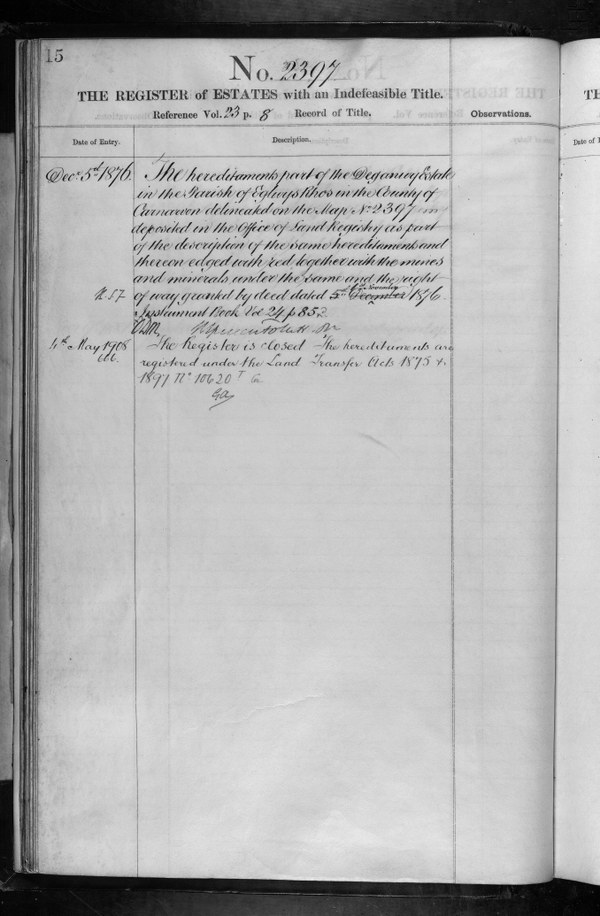 15
No. 2397
THE REGISTER of ESTATES with an Indefeasible Title.
Reference Vol. 23 p. 8 Record of Title.
Observations.
Date of Entry.
Description.
Decr 5th 1876.
The hereditaments part of the Deganwy Estate
in the Parish of Eglwys Rhos in the County of
Carnarvon delineated on the Map No 2397
deposited in the Office of Land Registry as part
of the description of the same hereditaments and
thereon edged with red together with the mines
and minerals under the same and the right
of way granted by deed dated 5th December 1876
Instrument Book Vol 24 p 85
4th May 1908
The Register is closed The hereditaments are
registered under the Land Transfer Acts 1875 &
1897 No 10620
TH
Date of E